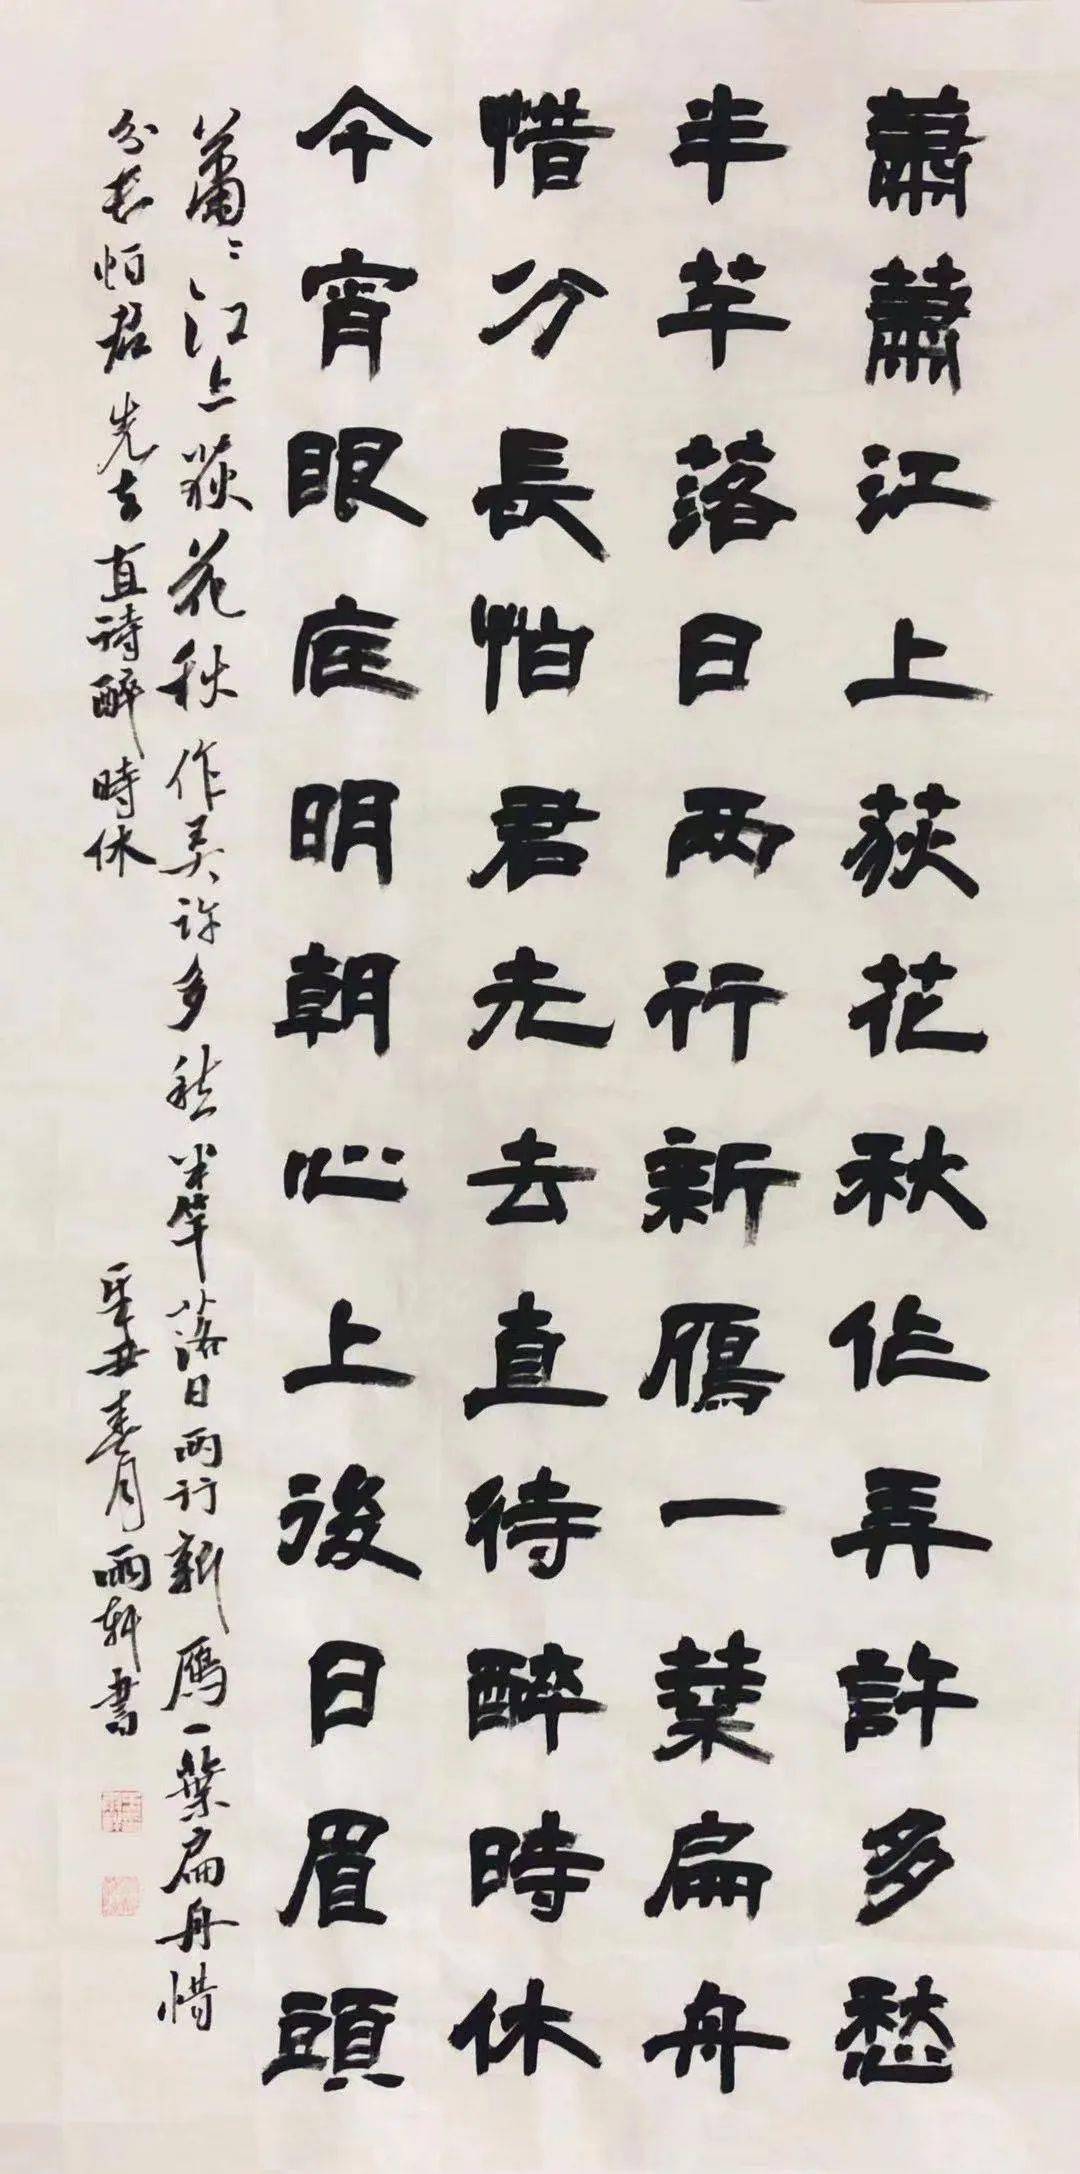 蕭蕭江上荻花秋作弄許多愁
半竿落日兩行新鴈一葉扁舟
惜分長怕君先去直待醉時休
今宵眼底明朝心上後日眉頭
蕭〻江上荻花秋作弄許多愁半竿落日兩行新鴈一葉扁舟惜
分長怕君先去直待醉時休
辛丑春月雨軒書